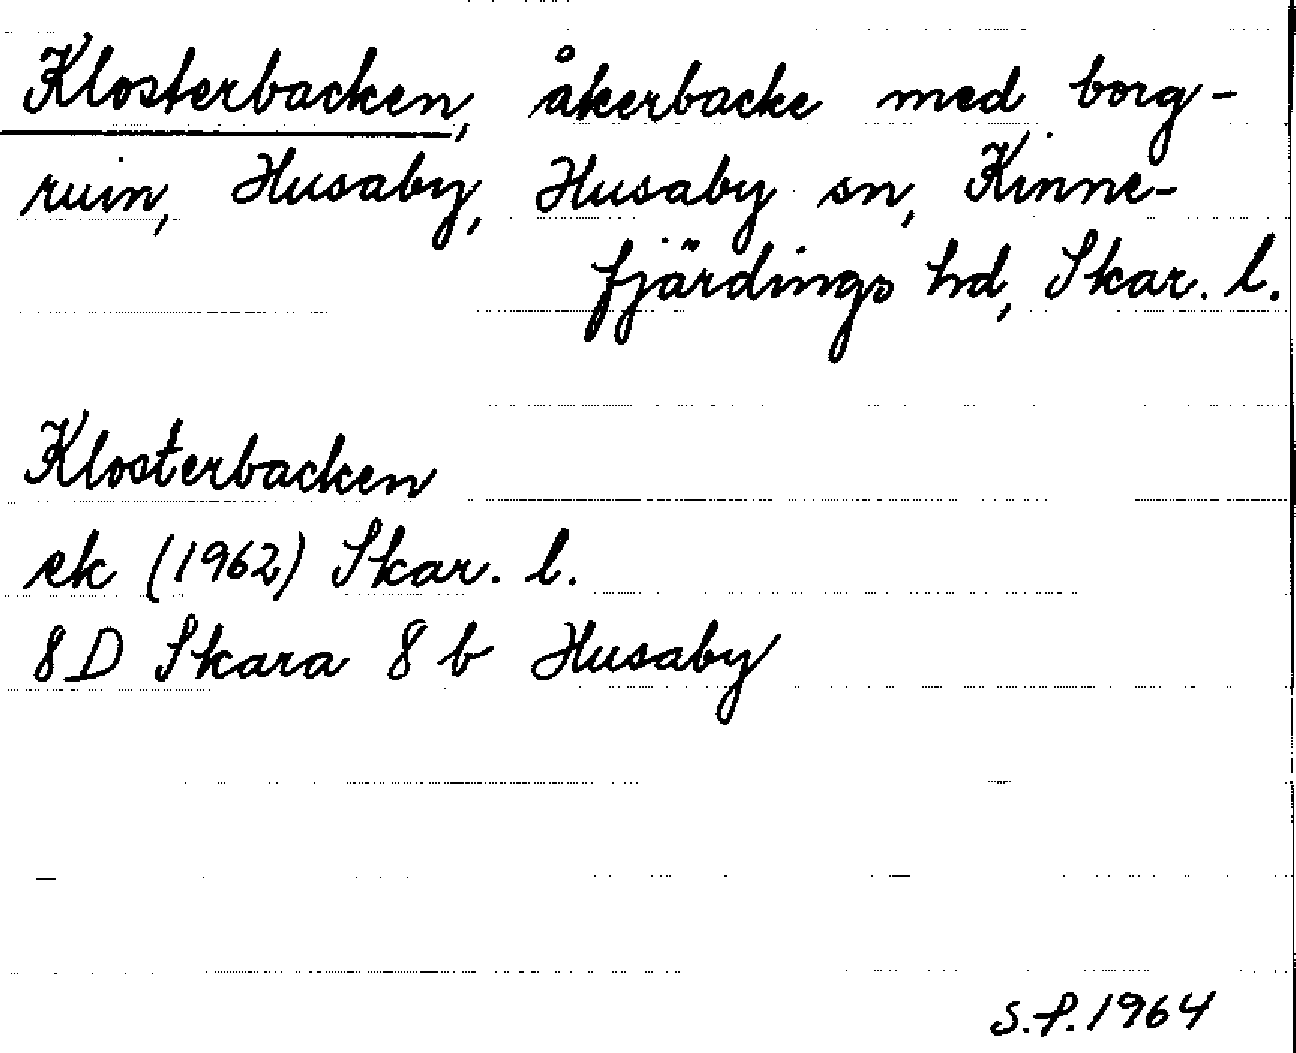 Klosterbacken, åkerbacke med borg-
ruin, Husaby, Husaby sn, Kinne-
fjärdings hd, Skar. l.
Klosterbacken
ek (1962) Skar. l.
8D Skara 8 b Husaby
S.P. 1964